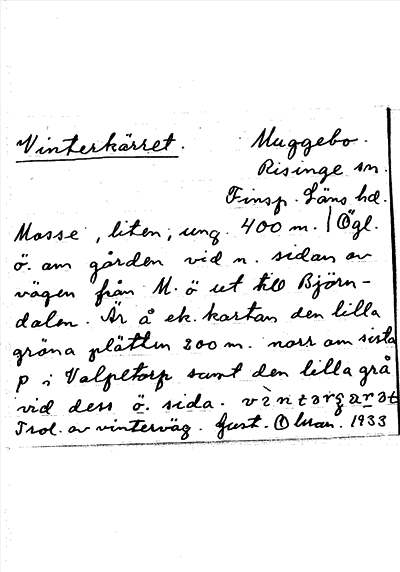 Vinterkärret. Muggebo.
Risinge sn.
Finsp. Läns hd.
Mosse, liten, ung. 400 m. | Ögl.
ö. om gården vid n. sidan av
vägen från M. ö ut till Björn-
dalen. Är å ek. kartan den lilla
gröna plätten 200 m. norr om sista
p i Valpetorp samt den lilla grå
vid dess ö. sida.
Trol. av vinterväg. Gust. Ohman. 1933